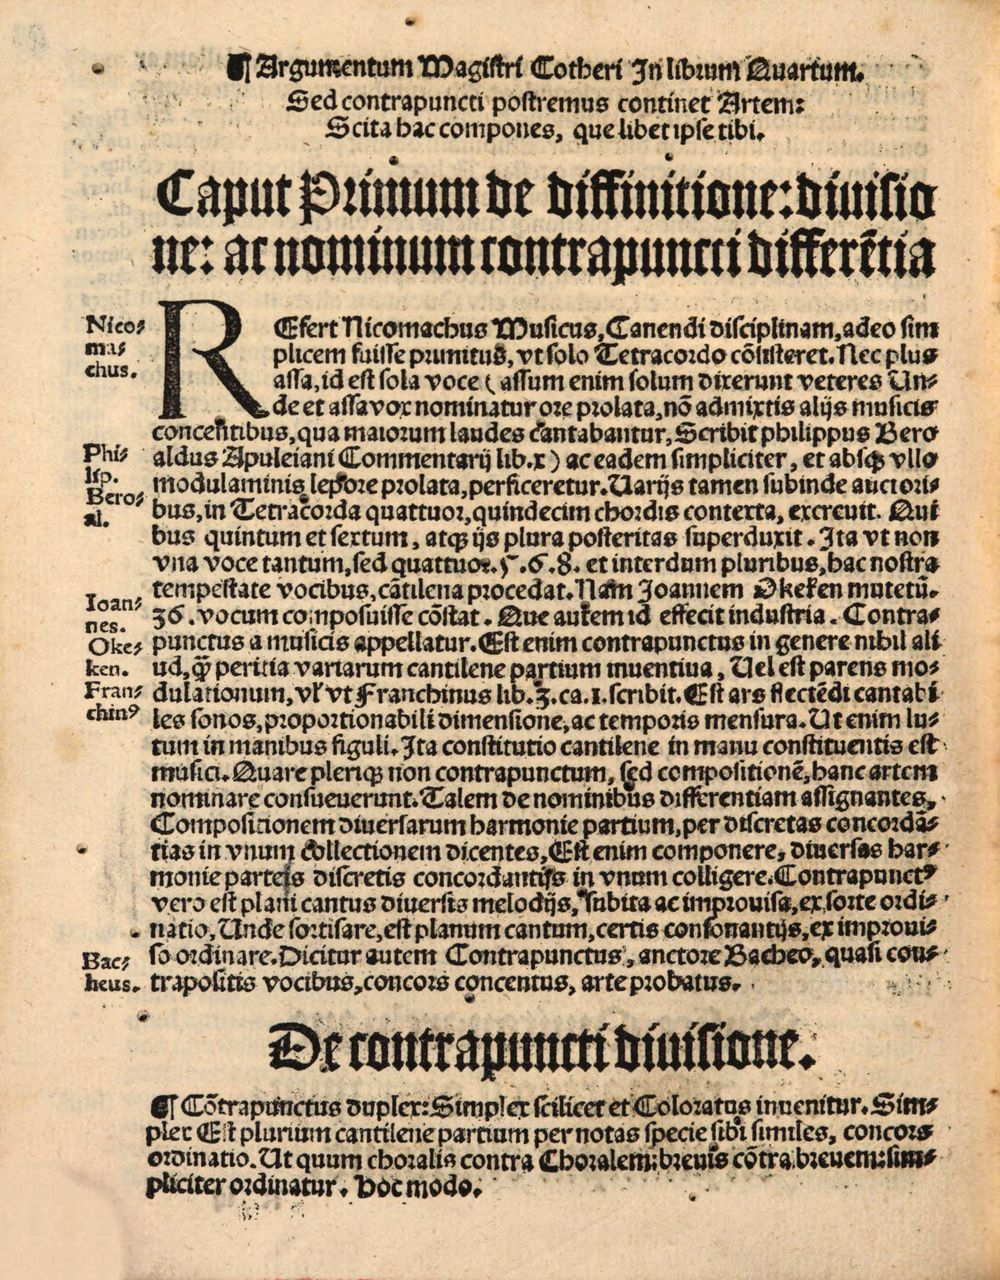 ¶ Argumentum Magistri Cotheri In librum Quartum.
Sed contrapuncti postremus continet Artem:
Scita hac compones, que libet ipse tibi.
Caput Primum de diffinitione: diuisio
ne: ac nominum contrapuncti differētia
Nico⸗
ma⸗
chus.
REfert Nicomachus Musicus, Canendi disciplinam, adeo sim
plicem fuisse primitus, vt solo Tetracordo cōsisteret. Nec plus
assa, id est sola voce (assum enim solum dixerunt veteres Un⸗
de et assa vox nominatur ore prolata, nō admixtis alijs musicis
concentibus, qua maiorum laudes cantabantur, Scribit philippus Bero
Phi⸗
lip.
Bero⸗
al.
aldus Apuleiani Commentarij lib.x) ac eadem simpliciter, et absqꝫ vllo
modulaminis lepore prolata, perficeretur. Uarijs tamen subinde auctori⸗
bus, in Tetracorda quattuor, quindecim chordis contexta, excreuit. Qui
bus quintum et sextum, atqꝫ ijs plura posteritas superduxit. Ita vt non
vna voce tantum, sed quattuor. 5. 6. 8. et interdum pluribus, hac nostra
tempestate vocibus, cātilena procedat. Nam Joannem Okeken mutetū.
Ioan⸗
nes.
Oke⸗
ken.
36. vocum composuisse cōstat. Que autem id effecit industria. Contra⸗
punctus a musicis appellatur. Est enim contrapunctus in genere nihil ali
ud, qꝫ̄ peritia variarum cantilene partium inuentiua, Uel est parens mo⸗
Fran⸗
chinꝰ
dulationum, vl' vt Franchinus lib. 3. ca. 1. scribit. Est ars flectēdi cantabi
les sonos, proportionabili dimensione, ac temporis mensura. Ut enim lu⸗
tum in manibus figuli. Ita constitutio cantilene in manu constituentis est
musici. Quare pleriqꝫ non contrapunctum, sed compositionē, hanc artem
nominare consueuerunt. Talem de nominibus differentiam assignantes,
Compositionem diuersarum harmonie partium, per discretas concordā⸗
tias in vnum collectionem dicentes, Est enim componere, diuersas har⸗
monie partes discretis concordantijs in vnum colligere. Contrapunctꝰ
vero est plani cantus diuersis melodijs, subita ac improuisa, ex sorte ordi⸗
natio, Unde sortisare, est planum cantum, certis consonantijs, ex improui⸗
Bac⸗
heus.
so ordinare. Dicitur autem Contrapunctus, auctore Bacheo, quasi con⸗
trapositis vocibus, concors concentus, arte probatus.
De contrapuncti diuisione.
¶ Cōtrapunctus duplex: Simplex scilicet et Coloratus inuenitur. Sim⸗
plex Est plurium cantilene partium per notas specie sibi similes, concors
ordinatio. Ut quum choralis contra Choralem: breuis cōtra breuem: sim⸗
pliciter ordinatur. Hoc modo.